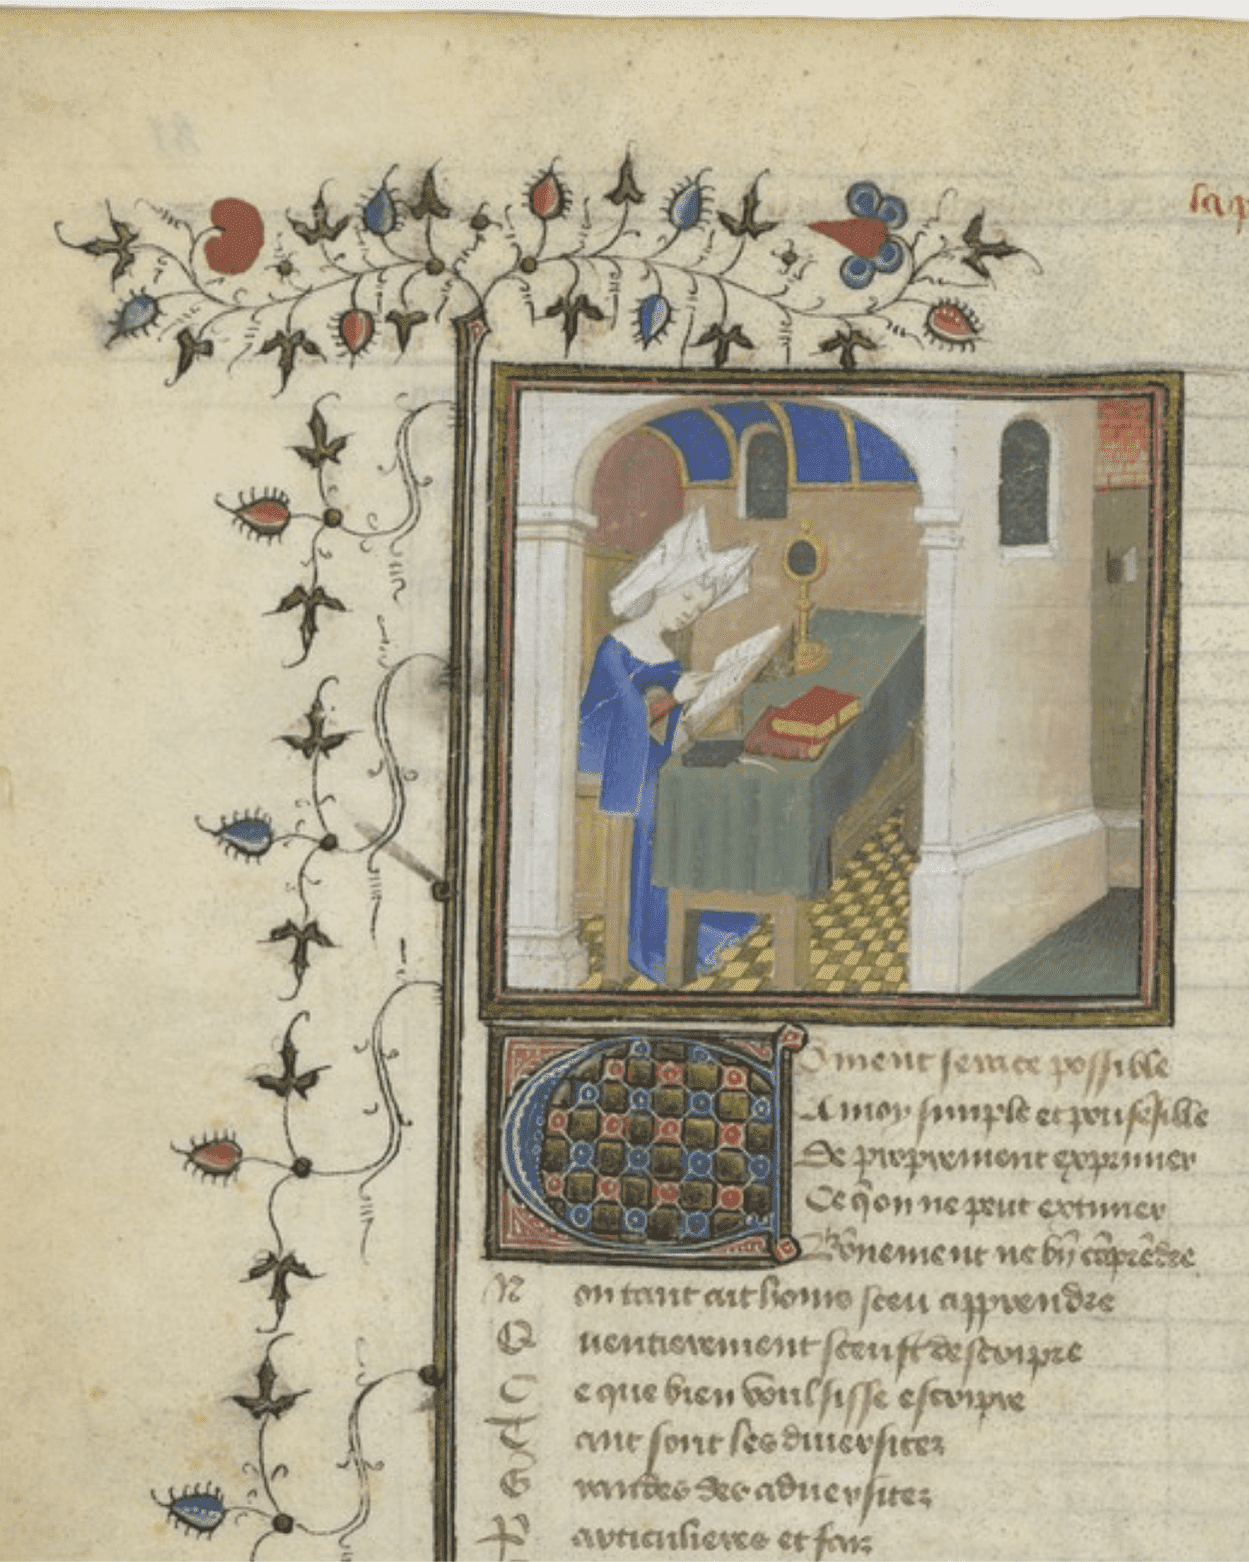 Coment sera ce possible
A moy simple et pou sēsible
De proprement exprimer
Ce q̄ on ne peut extimer
Bōnement ne bn̄ cōprēdre
Non tant ait homs sceu apprendre
Quentierement sceust descripre
Ce que bien voulsisse escripre
Tant sont les diuersitez
Grandes des aduersitez
Particulieres et fais